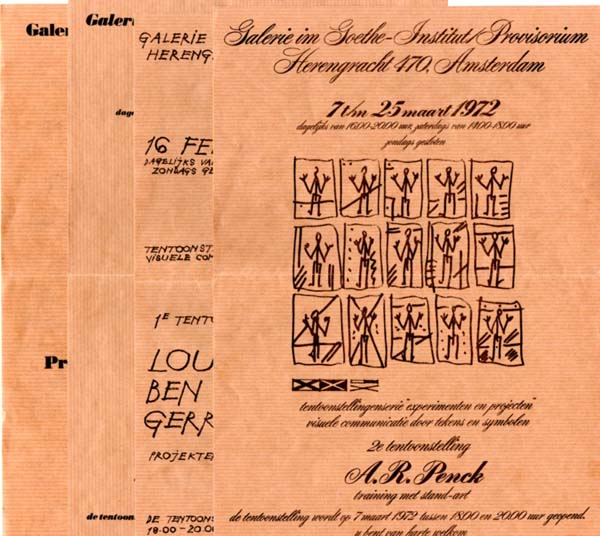 Galer
Pr
Galeri
dage
de tentoon
GALERIE
HERENG
16 FE
DAGELIJKS VA
ZONDAGS GE
TENTOONST
VISUELE COM
1E TENTO
LOU
BEN
GERR
PROJEKTE
DE TENTOONS
18.00 - 20.0
Galerie im Goethe-Institut/Provisorium
Herengracht 470, Amsterdam
7 t/m 25 maart 1972
dagelijks van 16.00-20.00 uur, zaterdags van 14.00-18.00 uur
zondags gesloten
tentoonstellingenserie "experimenten en projecten"
visuele communicatie door tekens en symbolen
2e tentoonstelling
A.R. Penck
training met stand-art
de tentoonstelling wordt op 7 maart 1972 tussen 18.00 en 20.00 uur geopend.
u bent van harte welkom